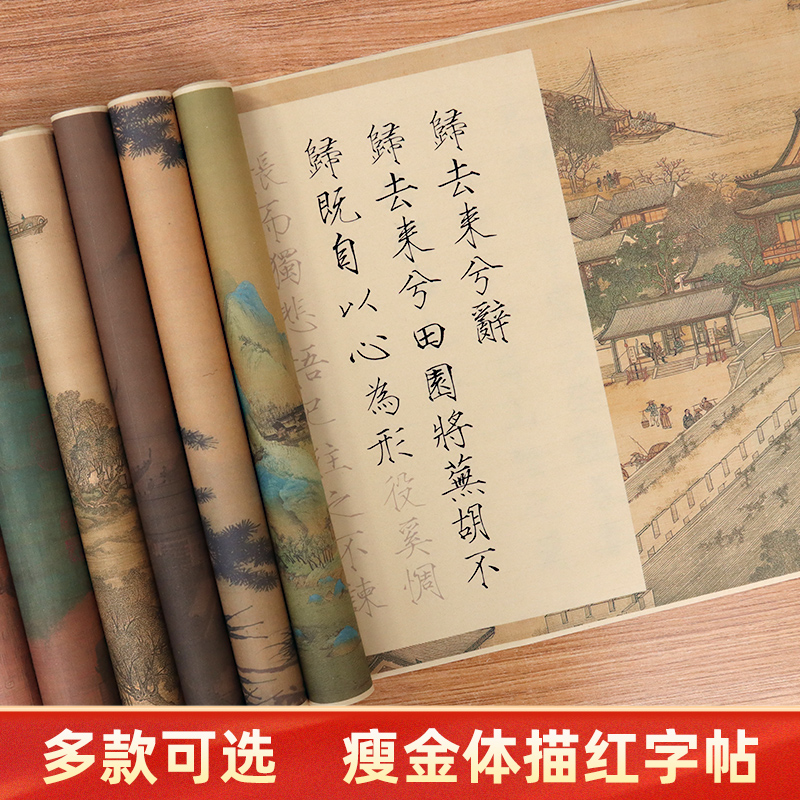 歸去来兮辭
歸去来兮田園將蕪胡不
歸既自以心為形役奚惆
而獨悲吾已往之不諫
多款可选 瘦金体描红字帖